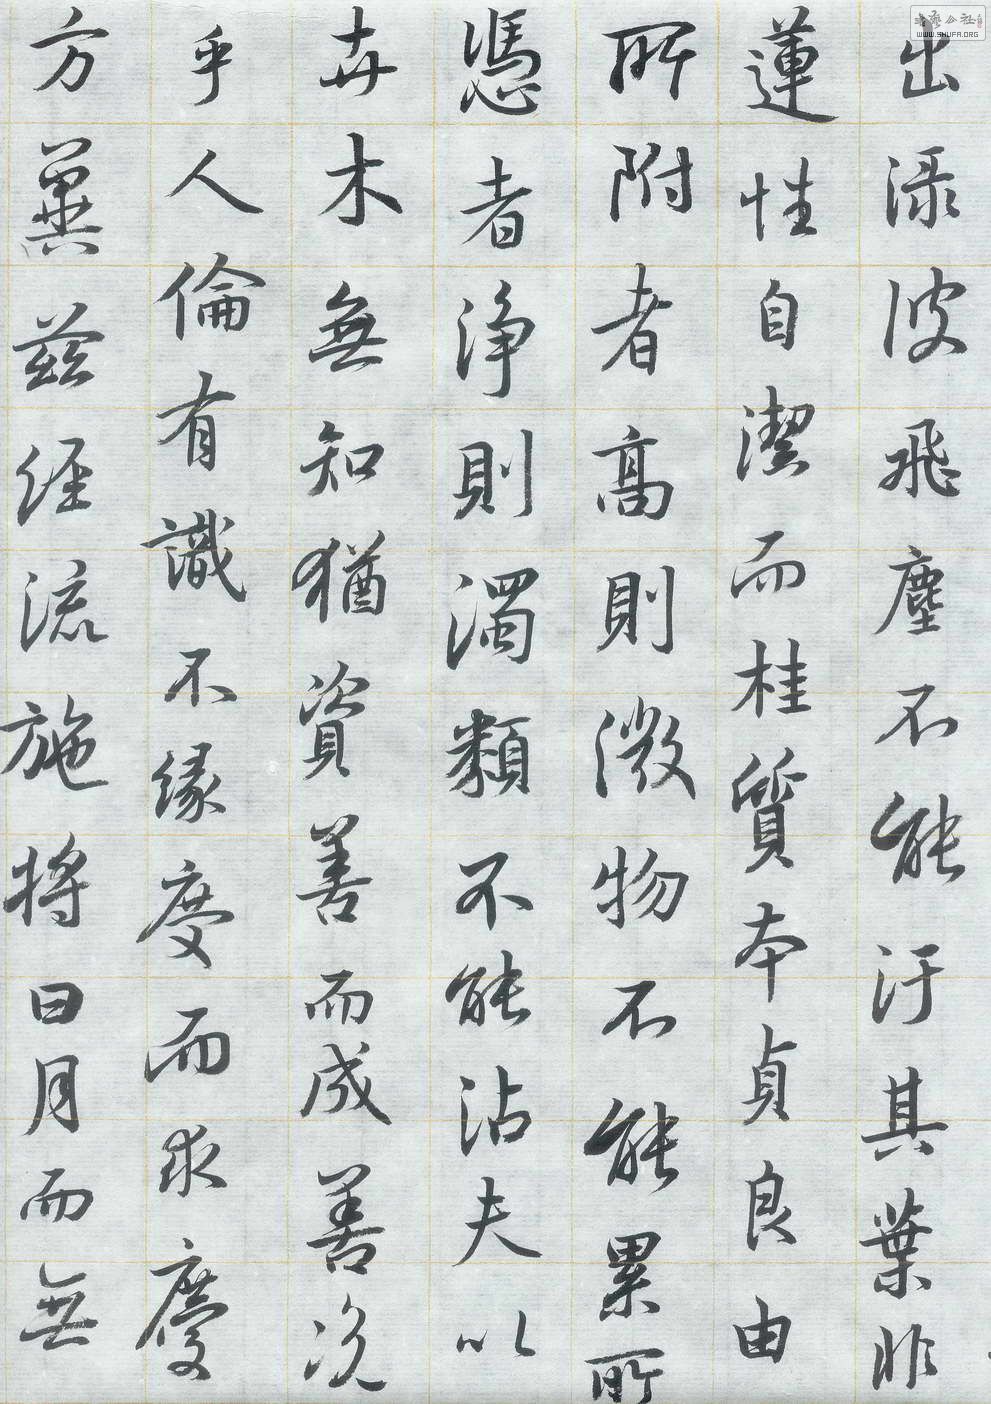 出渌波飛塵不能汙其葉非
蓮性自潔而桂質本貞良由
所附者高則微物不能累所
憑者淨則濁類不能沾夫以
卉木無知猶資善而成善況
乎人倫有識不緣慶而求慶
方冀茲經流施將日月而無
書藝公社
WWW.SHUFA.ORG